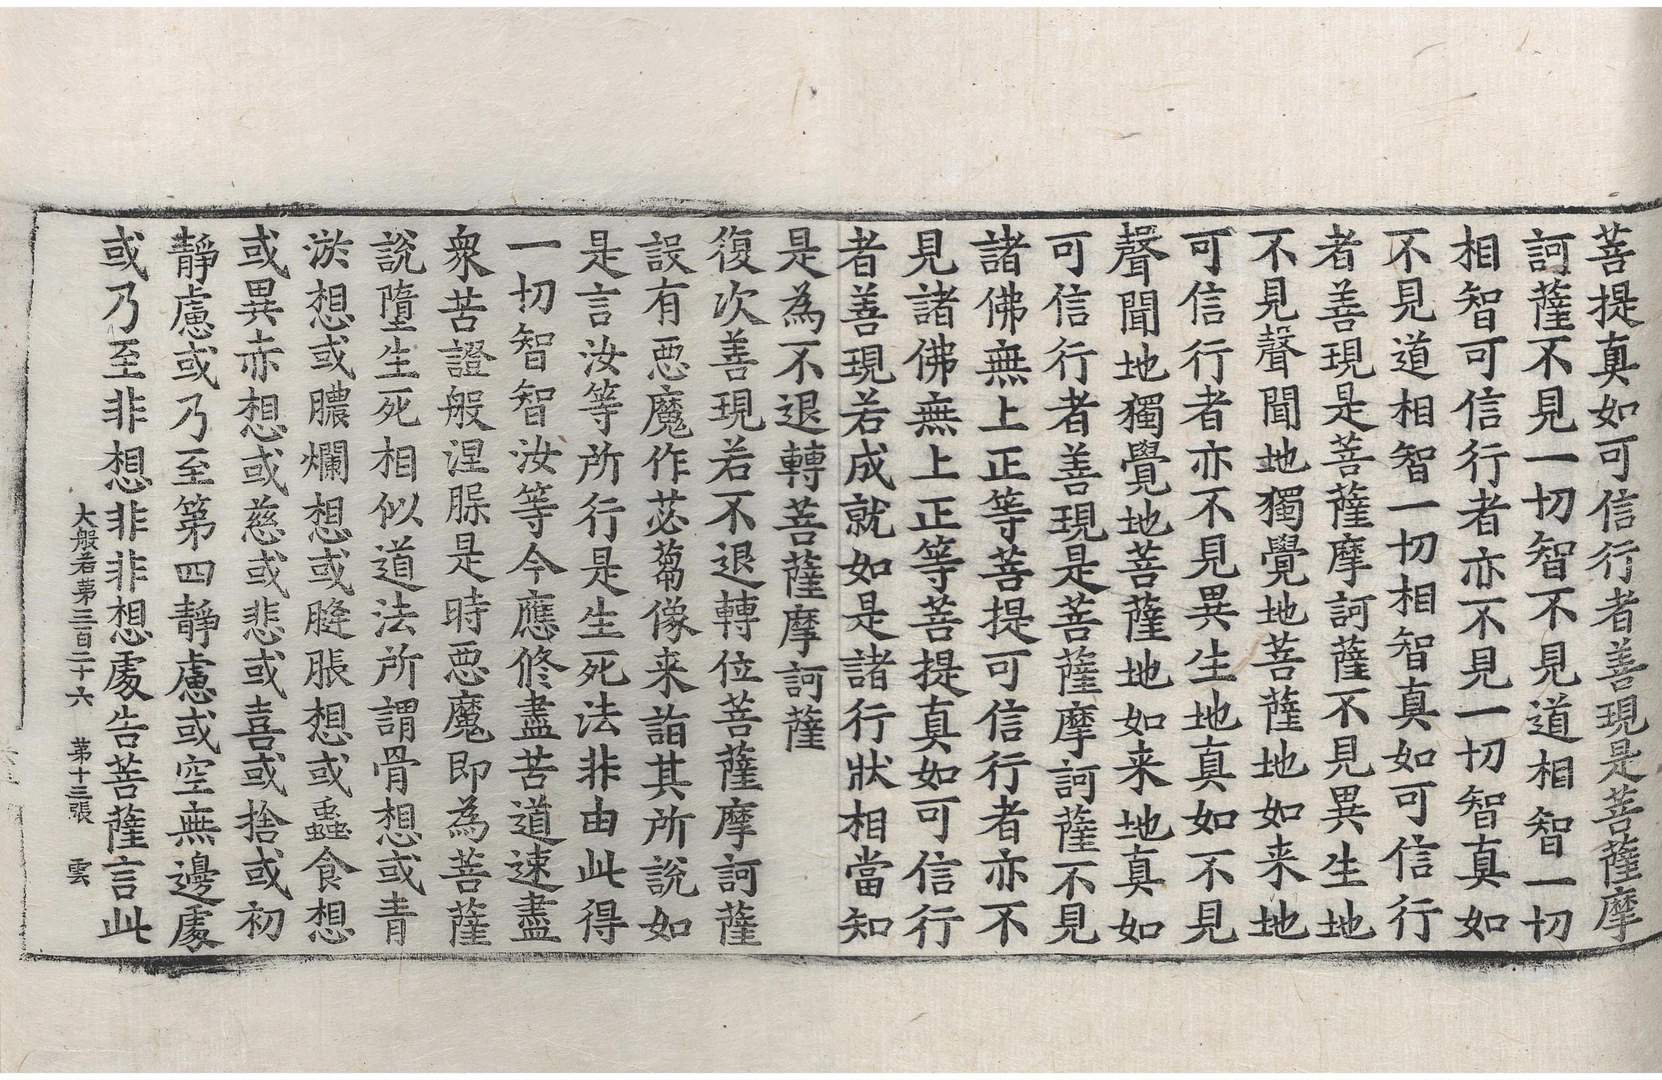 菩提真如可信行者善現是菩薩摩
訶薩不見一切智不見道相智一切
相智可信行者亦不見一切智真如
不見道相智一切相智真如可信行
者善現是菩薩摩訶薩不見異生地
不見聲聞地獨覺地菩薩地如来地
可信行者亦不見異生地真如不見
聲聞地獨覺地菩薩地如来地真如
可信行者善現是菩薩摩訶薩不見
諸佛無上正等菩提可信行者亦不
見諸佛無上正等菩提真如可信行
者善現若成就如是諸行狀相當知
是為不退轉菩薩摩訶薩
復次善現若不退轉位菩薩摩訶薩
設有惡魔作苾蒭像来詣其所說如
是言汝等所行是生死法非由此得
一切智智汝等今應修盡苦道速盡
衆苦證般涅槃是時惡魔即為菩薩
說墮生死相似道法所謂骨想或青
淤想或膿爛想或膖脹想或蟲食想
或異赤想或慈或悲或喜或捨或初
靜慮或乃至第四靜慮或空無邊處
或乃至非想非非想處告菩薩言此
大般若第三百二十六 第十三張 雲